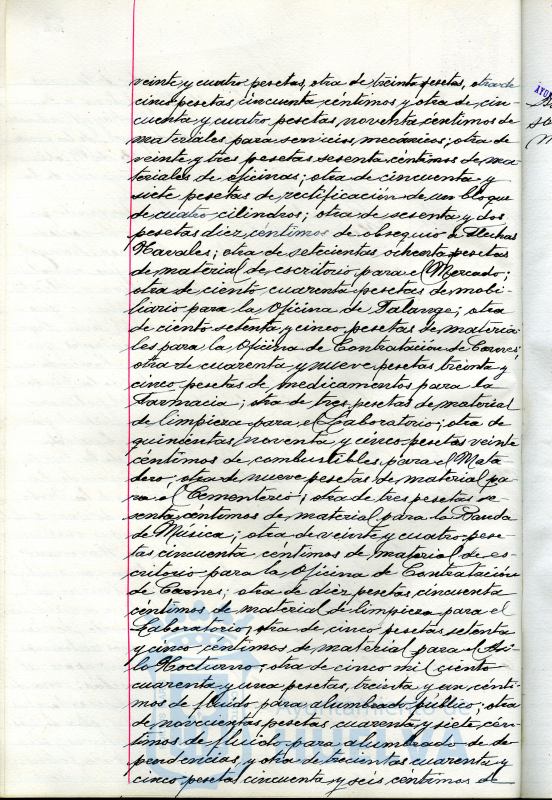 veinte y cuatro pesetas, otra de treinta pesetas, otra de
cinco pesetas cincuenta céntimos y otra de cin-
cuenta y cuatro pesetas noventa céntimos de
materiales para servicios mecánicos; otra de
veinte y tres pesetas sesenta céntimos de ma-
teriales de oficinas; otra de cincuenta y
siete pesetas de rectificación de un bloque
de cuatro cilindros; otra de sesenta y dos
pesetas diez céntimos de obsequio a Flechas
Navales; otra de setecientas ochenta pesetas
de material de escritorio para el Mercado;
otra de ciento cuarenta pesetas de mobi-
liario para la Oficina de Falange; otra
de ciento setenta y cinco pesetas de materia-
les para la Oficina de Contratación de Carnes;
otra de cuarenta y nueve pesetas treinta y
cinco pesetas de medicamentos para la
Farmacia; otra de tres pesetas de material
de limpieza para el Laboratorio; otra de
quinientas noventa y cinco pesetas veinte
céntimos de combustibles para el Mata
dero; otra de nueve pesetas de material pa-
ra el Cementerio; otra de tres pesetas se-
senta céntimos de material para la Banda
de Música; otra de veinte y cuatro pese-
tas cincuenta céntimos de material de es-
critorio para la Oficina de Contratación
de Carnes; otra de diez pesetas cincuenta
céntimos de material de limpieza para el
Laboratorio; otra de cinco pesetas setenta
y cinco céntimos de material para el Asi-
lo Nocturno; otra de cinco mil ciento
cuarenta y una pesetas, treinta y un cénti-
mos de fluido para alumbrado público; otra
de novecientas pesetas cuarenta y siete cén-
timos de fluido para alumbrado de de-
pendencias, y otra de trescientas cuarenta y
cinco pesetas cincuenta y seis céntimos de
Ayuntamiento de
HUELVA